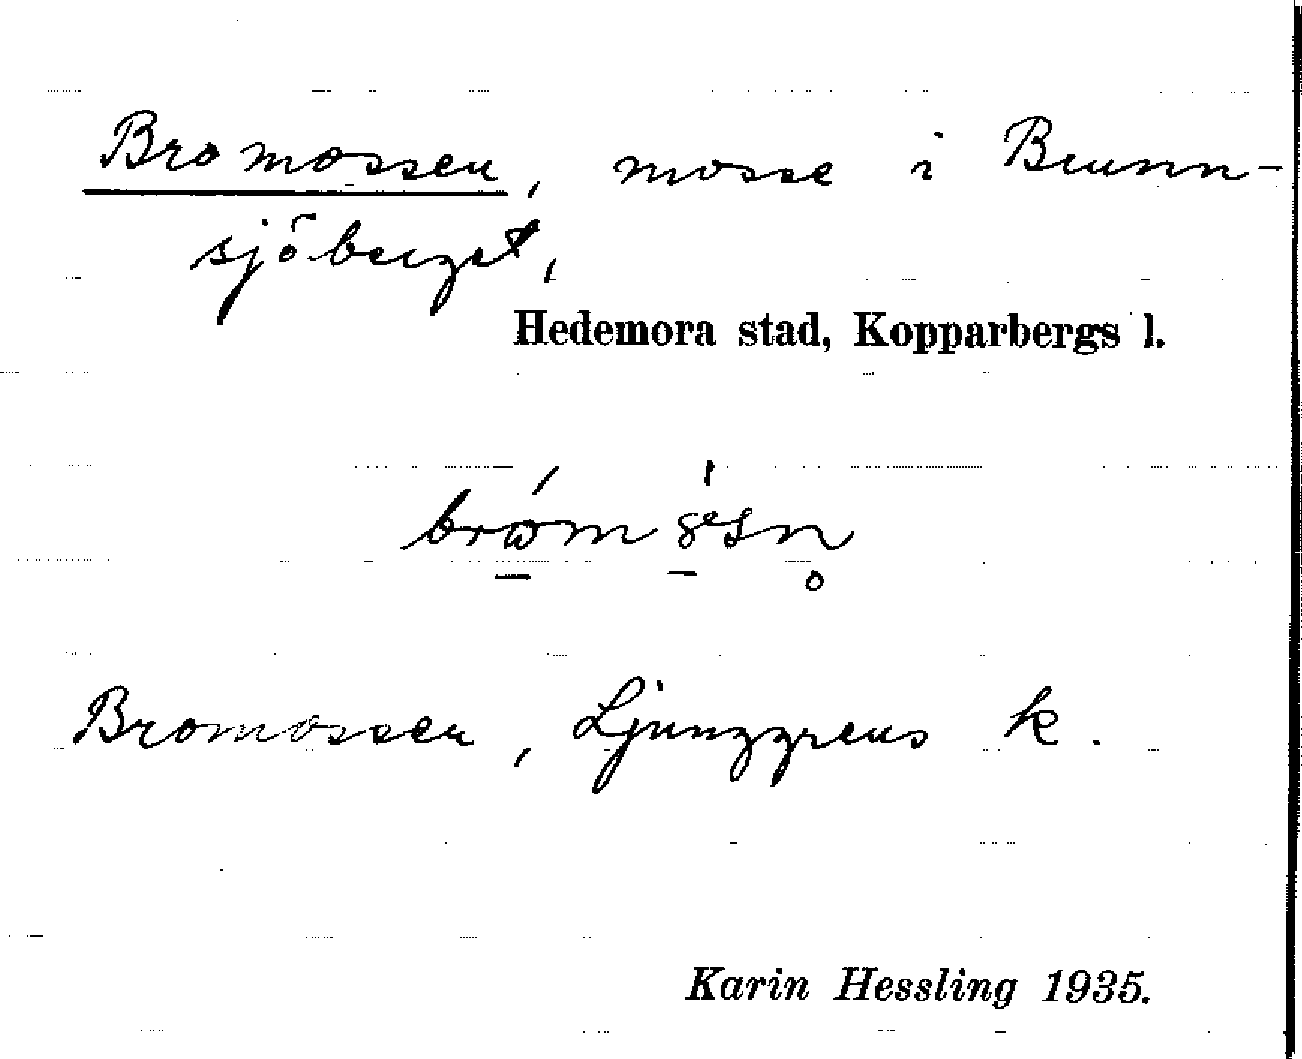 Bromossen, mosse i Brunn-
sjöberget,
Hedemora stad, Kopparbergs l.
Bromossen, Ljunggrens k.
Karin Hessling 1935.